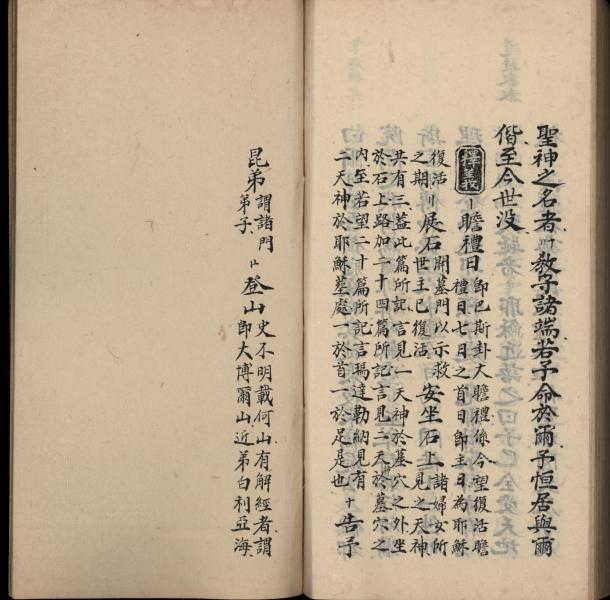 聖神之名者廿教予諸端若予命於爾予恒居與爾
偕至今世没
釋義
一瞻禮日
即巴斯卦大瞻禮係今望復活瞻
禮日七日之首日即主日為耶穌
復活
之期
二展石
開墓門以示救
世主已復活
安坐石上
諸婦女所
見之天神
共有三益此篇所記言見一天神於墓穴之外坐
於石上路加二十四篇所記言見二天神於墓穴之
內至若望二十篇所記言瑪達勒納見有
二天神於耶穌墓處一於首一於足是也
十告予
昆弟
謂諸門
弟子
登山
史不明載何山有解經者謂
即大博爾山近第白利亞海